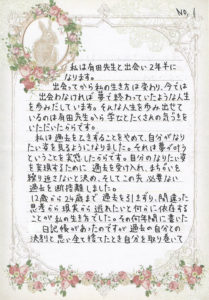 NO, 1
私は有田先生と出会い2年半
になります。
出会ってから私の生き方は変わり、今では
出会わなければ 夢で終わっていたような人生
を歩みだしています。そんな人生を歩み出せて
いるのは有田先生から学ぶとたくさんの気づきを
いただいたからです。
私は過去を乙することをやめて、自分がなり
たい姿を見るようになりました。それは夢が叶う
ということを実感したからです。自分のなりたい姿
を実現するために 過去を受け入れ、まちがいを
繰り返さないと決め、そしてこの先 必要ない
過去を断捨離しました。
12歳から24歳まで 過去を引きずり、間違った
思考から現実から逃れたいと何かに依存する
ことが私の生き方でした。その何年間に書いた
日記帳があったのですが 過去の自分との
決別と思い全て捨てたとき自分を取り巻いて